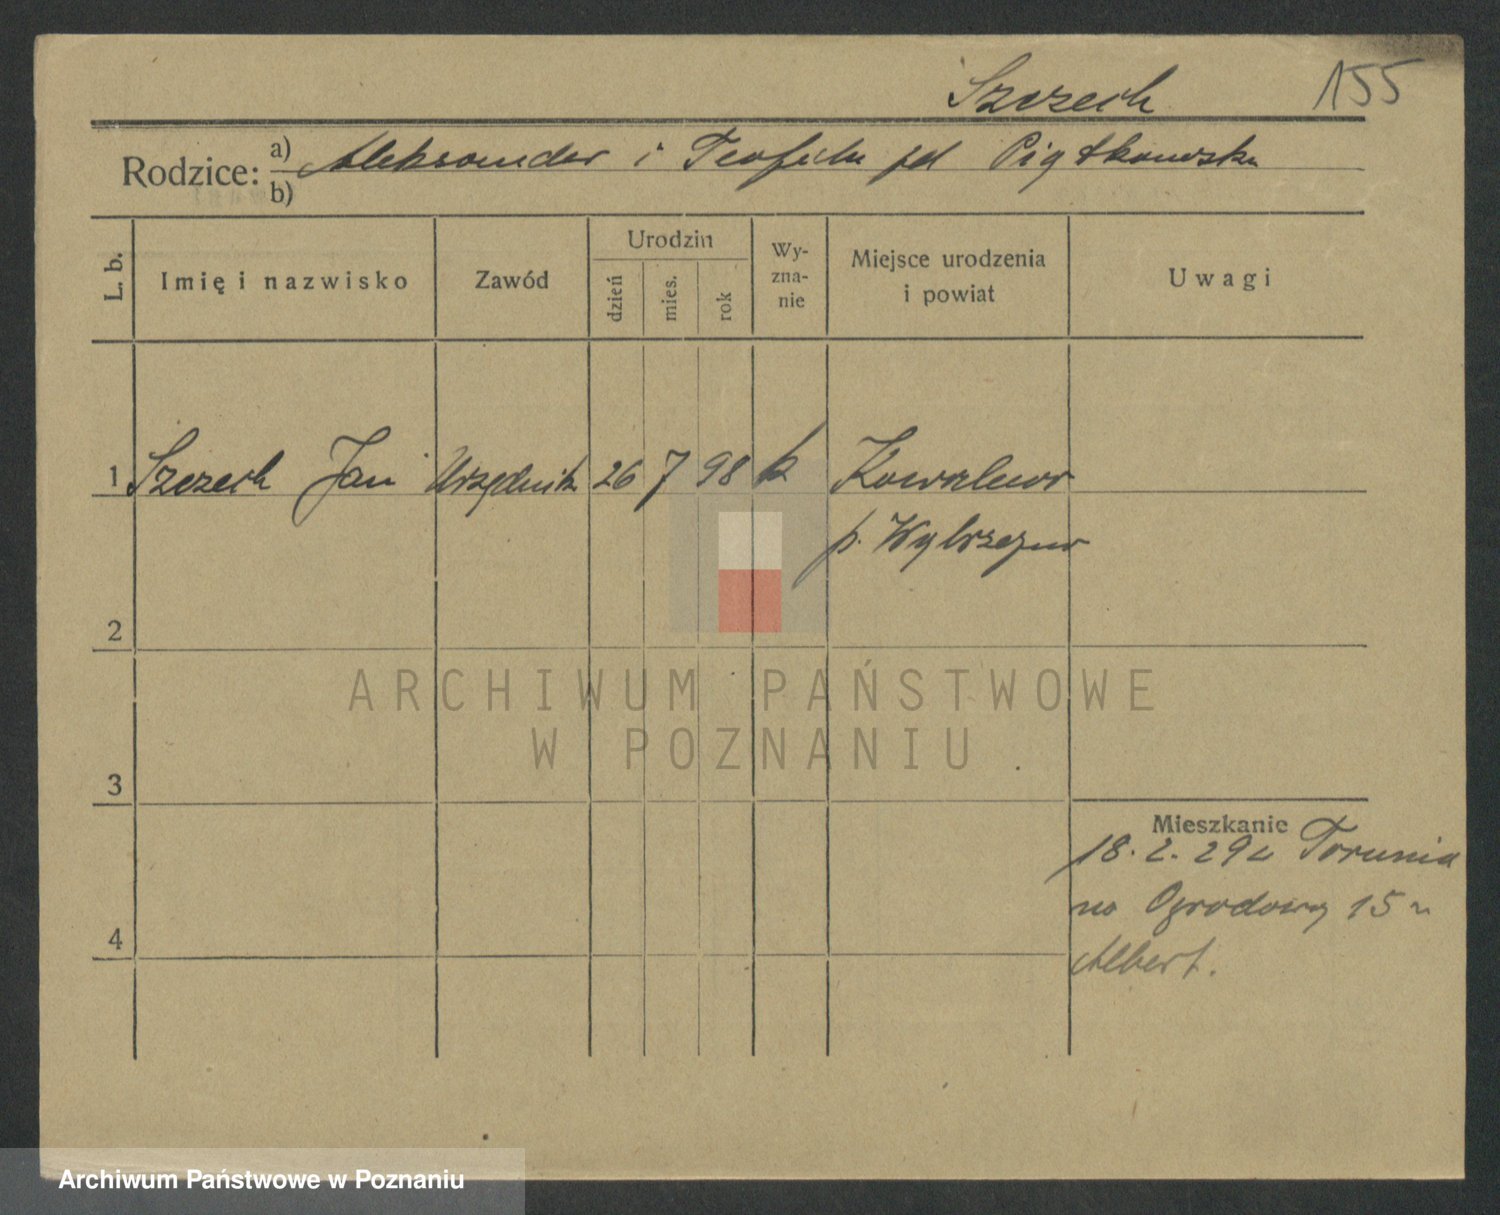 Szczech 155
Rodzice: a) Aleksander i Teofila jd Piątkowska
b)
L. b. Imię i nazwisko Zawód Urodzin Wy-zna-nie Miejsce urodzenia i powiat Uwagi
dzień mies. rok
1 Szczech Jan Urzędnik 26 7 98 k Kowalewo
p. Wąbrzezno
2
3
Mieszkanie
18. 2. 29 z Torunia
na Ogrodowy 15 u
4 Albert.
ARCHIWUM PAŃSTWOWE
W POZNANIU
Archiwum Państwowe w Poznaniu